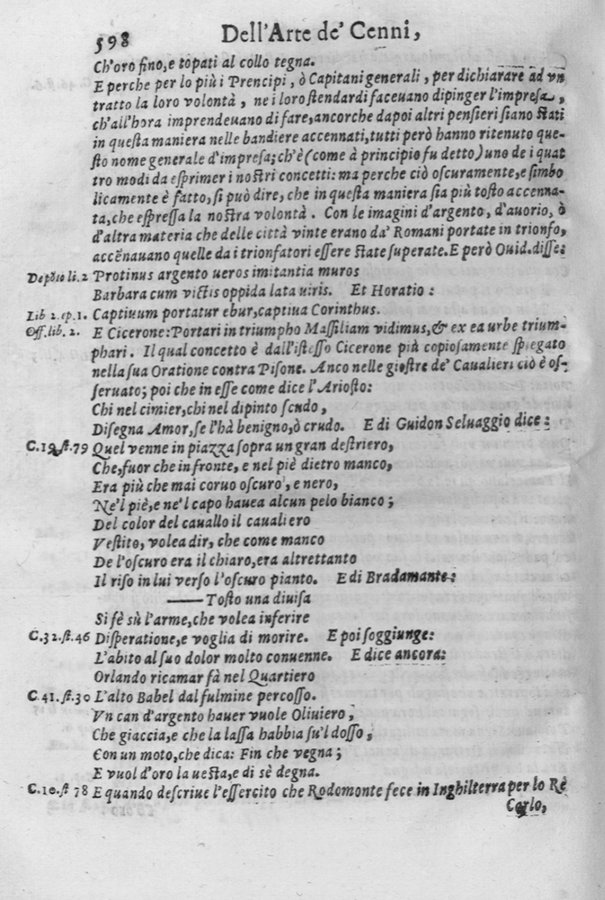 598 Dell'Arte de' Cenni,
Ch'oro fino, e topati al collo tegna.
E perche per lo più i Prencipi, ò Capitani generali, per dichiarare ad vn
tratto la loro volontà, ne i loro stendardi faceuano dipinger l'impresa,
ch'all'hora imprendeuano di fare, ancorche dapoi altri pensieri siano stati
in questa maniera nelle bandiere accennati, tutti però hanno ritenuto que-
sto nome generale d'impresa; ch'è (come à principio fu detto) uno de i quat
tro modi da esprimer i nostri concetti: ma perche ciò oscuramente, e simbo
licamente è fatto, si può dire, che in questa maniera sia più tosto accenna-
ta, che espressa la nostra volontà. Con le imagini d'argento, d'auorio, ò
d'altra materia che delle città vinte erano da' Romani portate in trionfo,
accẽnauano quelle da i trionfatori essere state superate. E però Ouid. disse:
De põto li. 2 Protinus argento ueros imitantia muros
Barbara cum victis oppida lata uiris. Et Horatio:
Lib 2. ep. 1. Captiuum portatur ebur, captiua Corinthus.
Off. lib. 2. E Cicerone: Portari in triumpho Massiliam vidimus, & ex ea urbe trium-
phari. Il qual concetto è dall'istesso Cicerone più copiosamente spiegato
nella sua Oratione contra Pisone. Anco nelle giostre de' Caualieri ciò è os-
seruato; poi che in esse come dice l'Ariosto:
Chi nel cimier, chi nel dipinto scudo,
Disegna Amor, se l'hà benigno, ò crudo. E di Guidon Seluaggio dice:
C. 19. st. 79 Quel venne in piazza sopra un gran destriero,
Che, fuor che in fronte, e nel piè dietro manco,
Era più che mai coruo oscuro, e nero,
Ne'l piè, e ne'l capo hauea alcun pelo bianco;
Del color del cauallo il caualiero
Vestito, volea dir, che come manco
De l'oscuro era il chiaro, era altrettanto
Il riso in lui verso l'oscuro pianto. E di Bradamante:
—— Tosto una diuisa
Si fè sù l'arme, che volea inferire
C. 32. st. 46 Disperatione, e voglia di morire. E poi soggiunge:
L'abito al suo dolor molto conuenne. E dice ancora:
Orlando ricamar fà nel Quartiero
C. 41. st. 30 L'alto Babel dal fulmine percosso.
Vn can d'argento hauer vuole Oliuiero,
Che giaccia, e che la lassa habbia su'l dosso,
Con un moto, che dica: Fin che vegna;
E vuol d'oro la uesta, e di sè degna.
C. 10. st 78 E quando descriue l'essercito che Rodomonte fece in Inghilterra per lo Rè
Carlo,